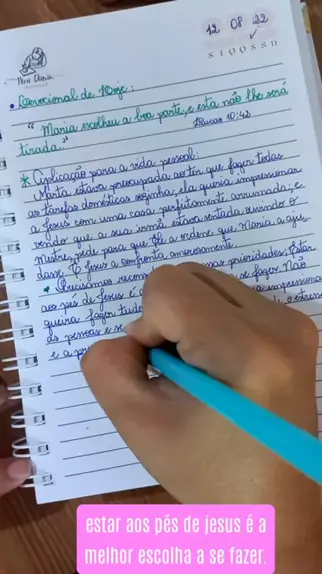 12 08 22
S T Q Q S S D
Para Diana
• Devocional de Hoje:
"Maria escolheu a boa parte, e esta não lhe será
tirada."
Lucas 10:42
* Aplicação para a vida pessoal:
Marta estava preocupada ao ter que fazer todas
as tarefas domésticas sozinha, ela queria impressionar
a Jesus com uma casa perfeitamente arrumada, e
vendo que a sua irmã estava sentada ouvindo o
Mestre, pede para que Ele a ordene que Maria a aju-
dasse. E Jesus a confronta amorosamente.
• Precisamos nossas prioridades. Estar
aos pés de Jesus é a se fazer. Não
queira fazer tudo impressionar
as pessoas e se
e a
estar aos pés de jesus é a
melhor escolha a se fazer.